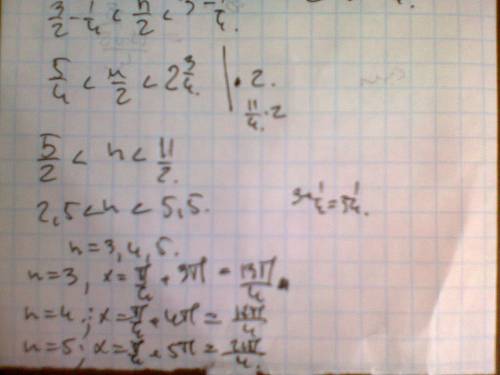 3/2 - 1/4 < n/2 < 3 - 1/4.
5/4 < n/2 < 2 3/4. | · 2.
11/4 · 2
5/2 < n < 11/2.
2,5 < n < 5,5.
n = 3, 4, 5.
n = 3, x = π/4 + 3π = 13π/4.
n = 4; x = π/4 + 4π =
n = 5; x = π/4 + 5π = 21π/4.